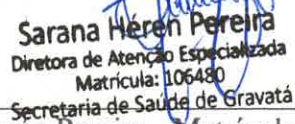 Sarana Héren Pereira
Diretora de Atenção Especializada
Matrícula: 106480
Secretaria de Saúde de Gravatá